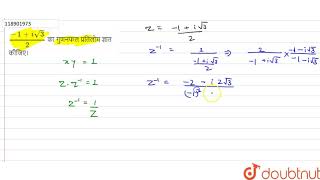 118901973
(-1+i√3)/2 का गुणनफल प्रतिलोम ज्ञात
कीजिए।
xy = 1
z·z⁻¹ = 1
z⁻¹ = 1/z
z = (-1+i√3)/2
z⁻¹ = 1/((-1+i√3)/2) ⇒ 2/(-1+i√3) × (-1-i√3)/(-1-i√3)
z⁻¹ = (-2 - i2√3)/((-1)²
doubtnut